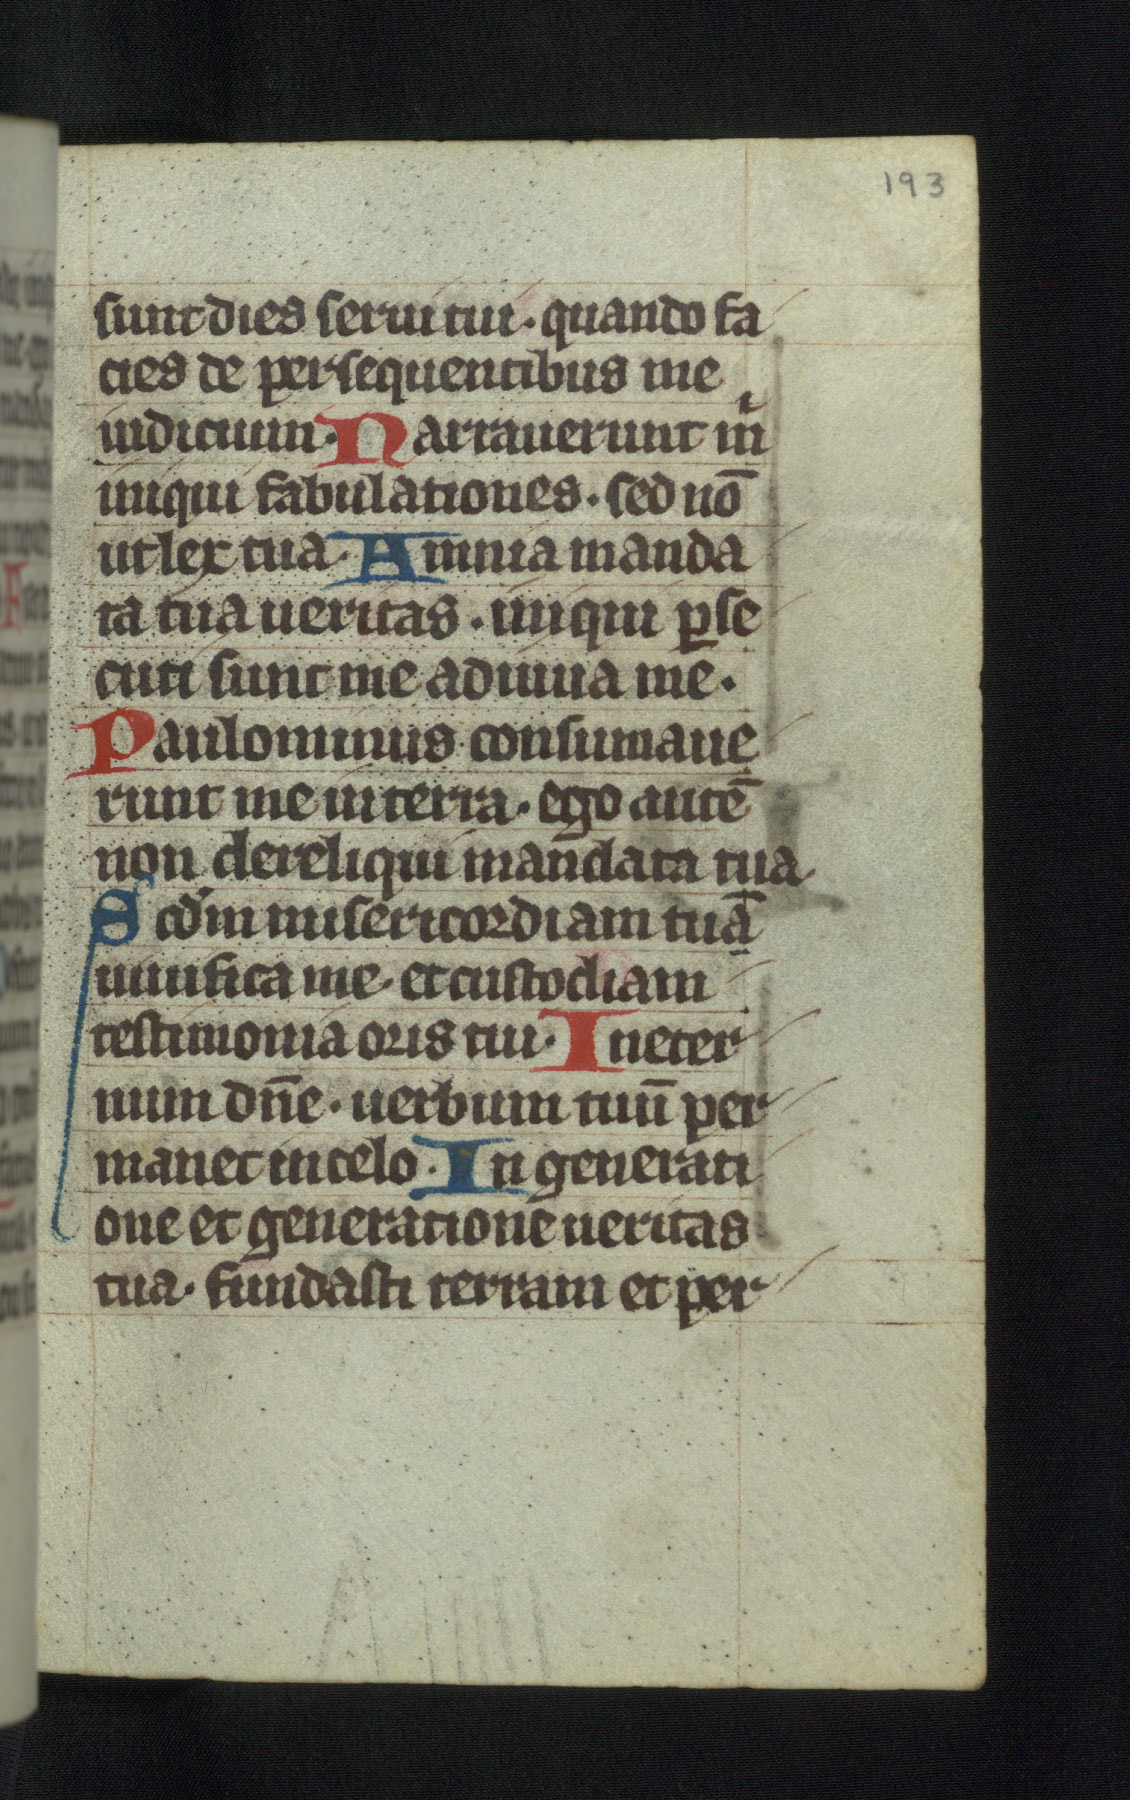 193
sunt dies serui tui · quando fa
cies de persequentibus me
iudicium · Narrauerunt m̅
iniqui fabulationes · sed no̅
ut lex tua · Amnia manda
ta tua ueritas · iniqui ꝑse
cuti sunt me adiuua me ·
Paulominus consumaue
runt me in terra · ego aute̅
non dereliqui mandata tua ·
Scd̅m misericordiam tua̅
uiuifica me · et custodiam
testimonia oris tui · In eter
num dn̅e · uerbum tuu̅ per
manet in celo · In generati
one et generatione ueritas
tua · fundasti terram et per